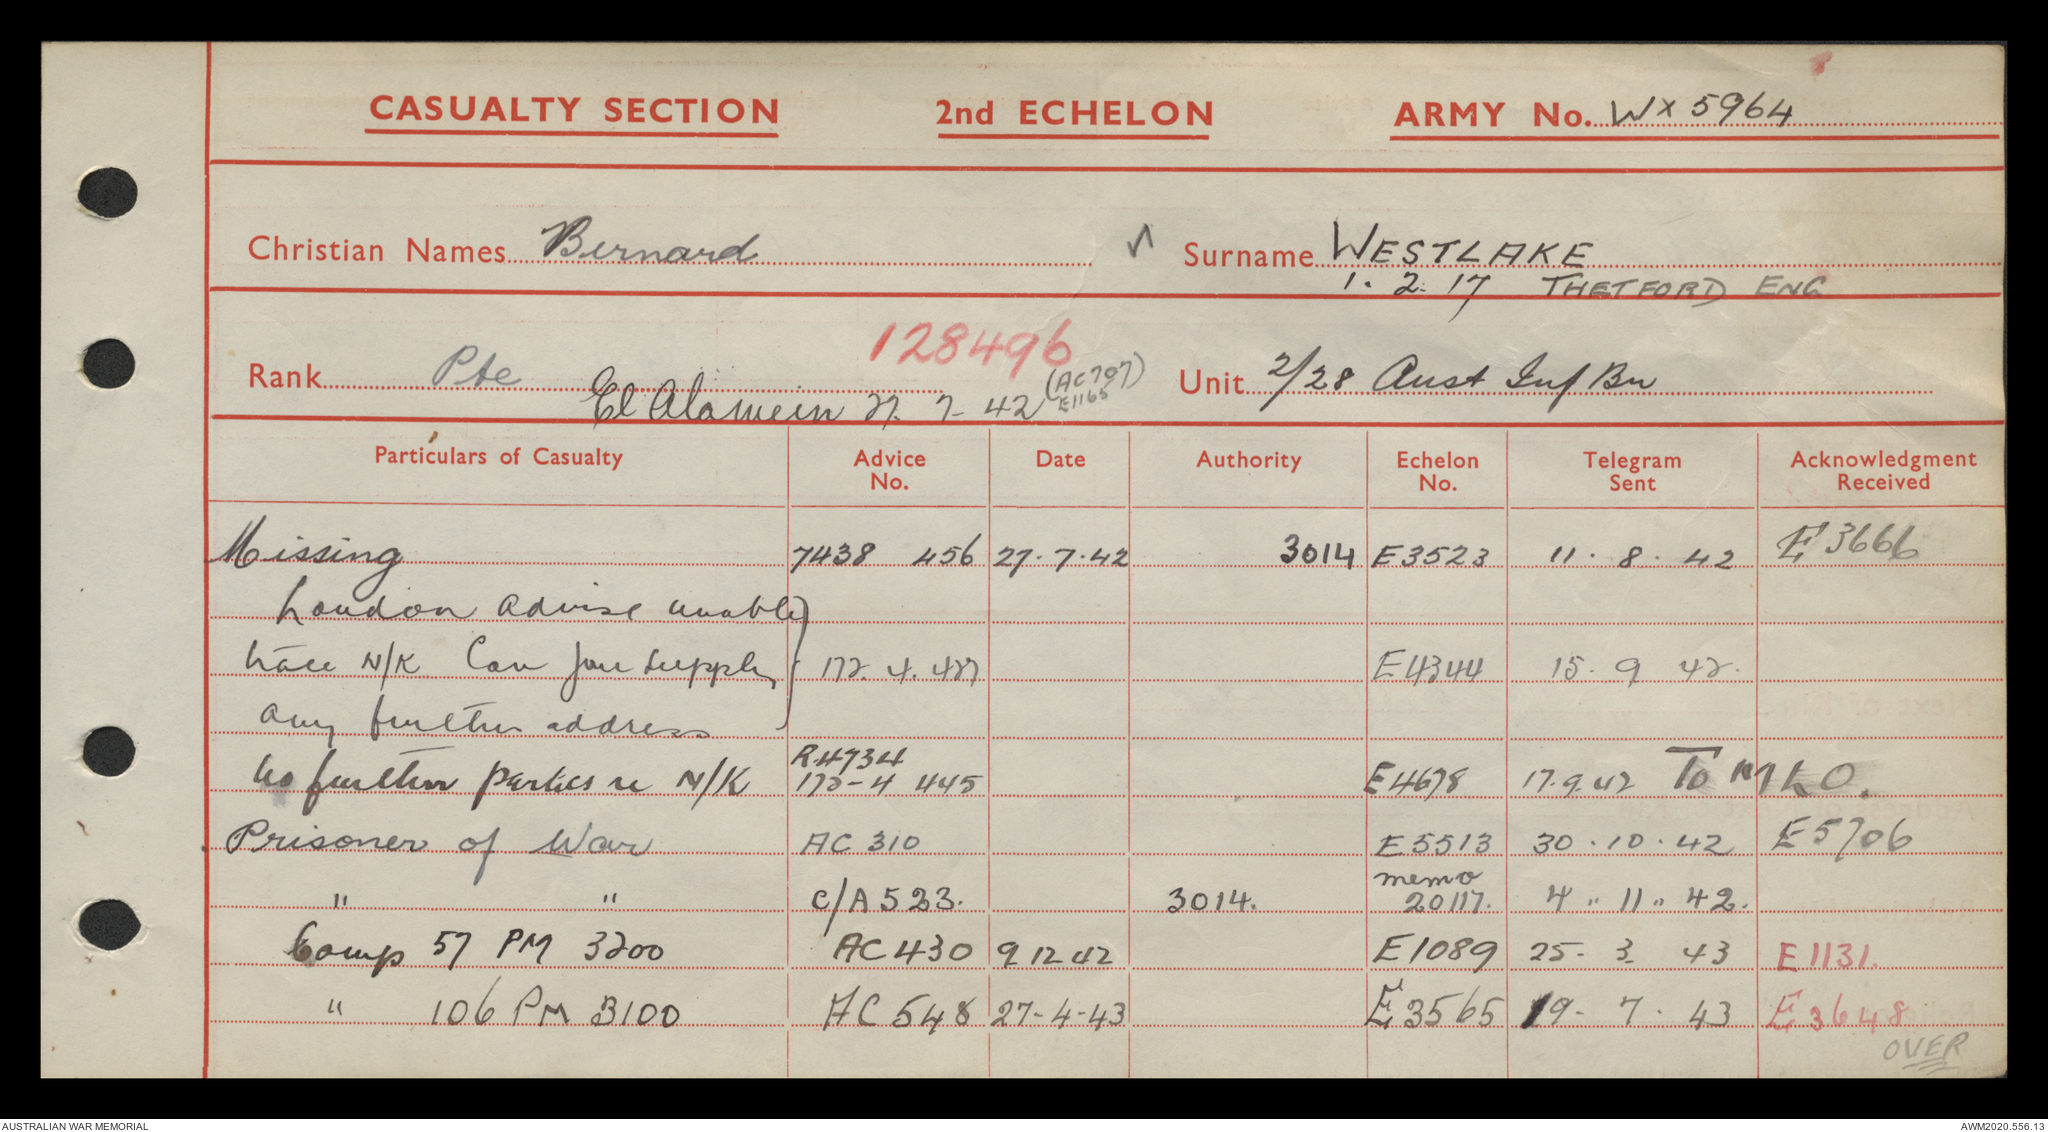 CASUALTY SECTION 2nd ECHELON ARMY No. WX 5964
Christian Names Bernard Surname WESTLAKE
1. 2. 17 THETFORD ENG
128496
Rank Pte (AC707) Unit 2/28 Aust Inf Bn
El Alamein 27. 7- 42 E1165
Particulars of Casualty Advice No. Date Authority Echelon No. Telegram Sent Acknowledgment Received
Missing 7438 456 27.7.42 3014 E3523 11. 8. 42 E3666
London advise unable
trace N/K Can you supply 172.4.427 E4344 15. 9 42.
any further address
R4734
No further parties re N/K 172-4 445 E4678 17.9.42 To MLO.
Prisoner of War AC 310 E5513 30.10.42 E5706
memo
" " C/A 523. 3014. 20117. 4 " 11 " 42.
Camp 57 PM 3200 AC 430 9 12 42 E1089 25- 3 43 E1131.
" 106 PM 3100 AC 548 27-4-43 E3565 19- 7. 43 E3648
OVER
AUSTRALIAN WAR MEMORIAL AWM2020.556.13